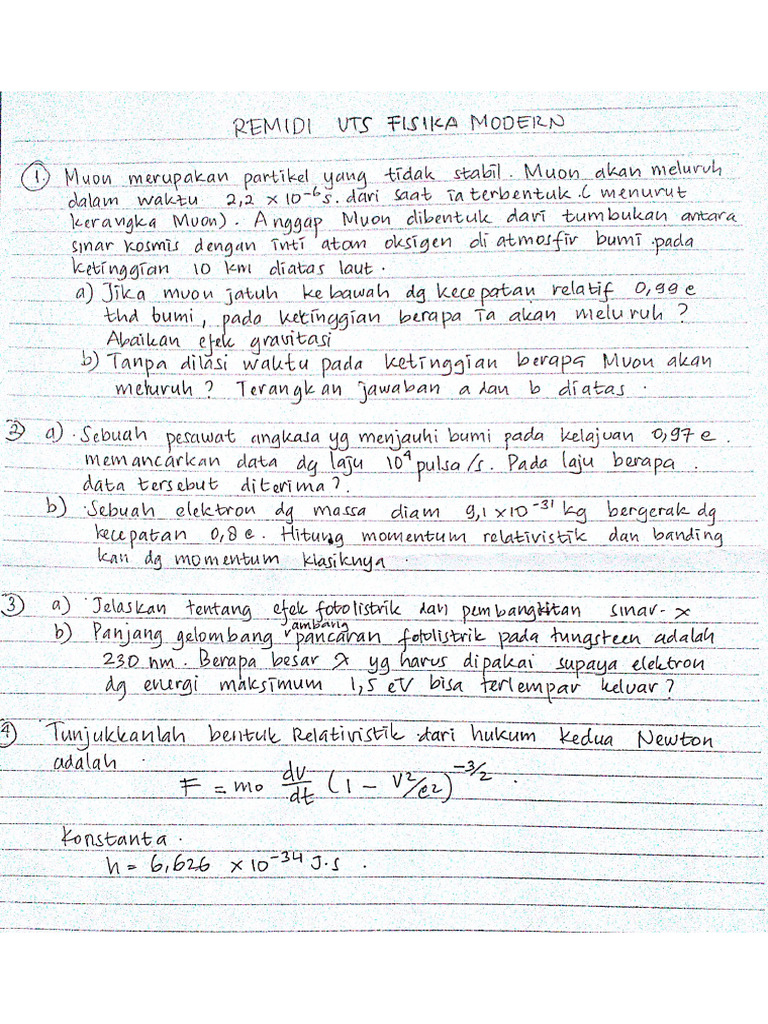 REMIDI UTS FISIKA MODERN
① Muon merupakan partikel yang tidak stabil. Muon akan meluruh
dalam waktu 2,2 × 10⁻⁶ s. dari saat ia terbentuk. ( menurut
kerangka Muon). Anggap Muon dibentuk dari tumbukan antara
sinar kosmis dengan inti atom oksigen di atmosfir bumi pada
ketinggian 10 km diatas laut.
a) Jika muon jatuh kebawah dg kecepatan relatif 0,99 c
thd bumi, pada ketinggian berapa ia akan meluruh ?
Abaikan efek gravitasi
b) Tanpa dilasi waktu pada ketinggian berapa Muon akan
meluruh ? Terangkan jawaban a dan b diatas.
② a). Sebuah pesawat angkasa yg menjauhi bumi pada kelajuan 0,97 c.
memancarkan data dg laju 10⁴ pulsa/s. Pada laju berapa
data tersebut diterima?.
b) Sebuah elektron dg massa diam 9,1 × 10⁻³¹ kg bergerak dg
kecepatan 0,8 c. Hitung momentum relativistik dan banding
kan dg momentum klasiknya.
③ a) Jelaskan tentang efek fotolistrik dan pembangkitan sinar-x
b) Panjang gelombang ambang pancaran fotolistrik pada tungsteen adalah
230 nm. Berapa besar λ yg harus dipakai supaya elektron
dg energi maksimum 1,5 eV bisa terlempar keluar?
④ Tunjukkanlah bentuk Relativistik dari hukum kedua Newton
adalah
F = mo dv/dt (1 - V²/c²)^-3/2.
Konstanta.
h = 6,626 × 10⁻³⁴ J.s.